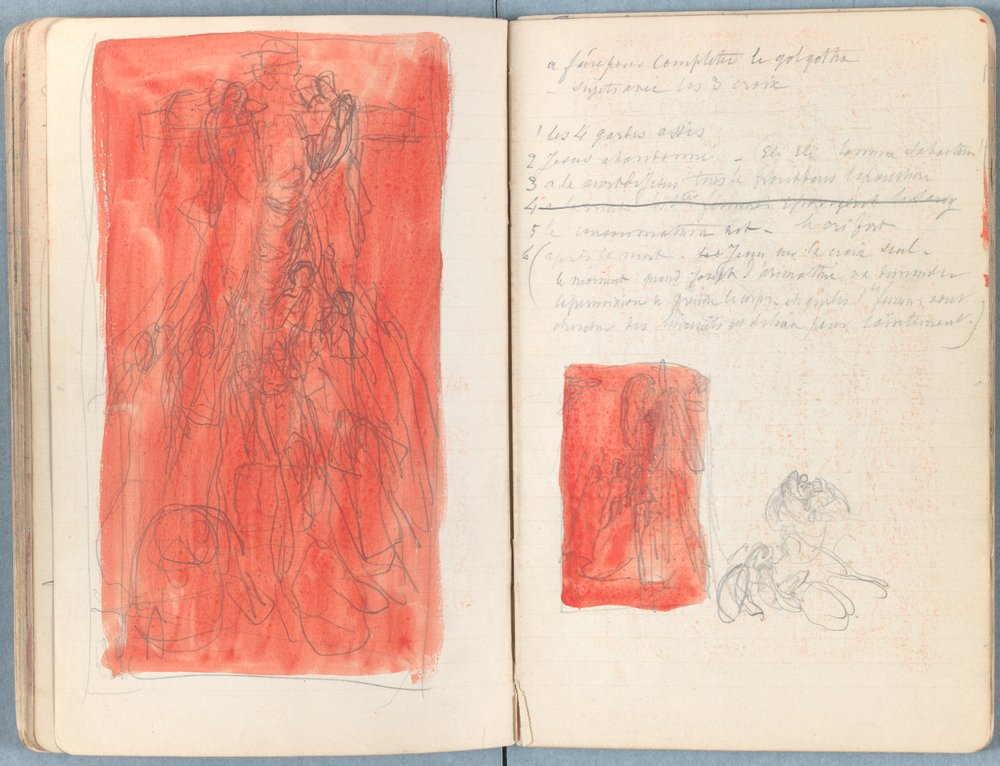 a faire pour completer le golgotha
- sujets avec les 3 croix
1 les 4 gardes assis
2 Jesus abandonné - (Eli Eli lamma sabactani)
3 a la mort de Jesus tous le
4 a la
5 le consommatum est - le cri fort
6 (après la mort. les Jesus sur la croix seul -
le moment quand Joseph d'arimathie va demander
la permission de prendre le corps et qu'elles les femmes vont
chercher des pour l'ointement.)